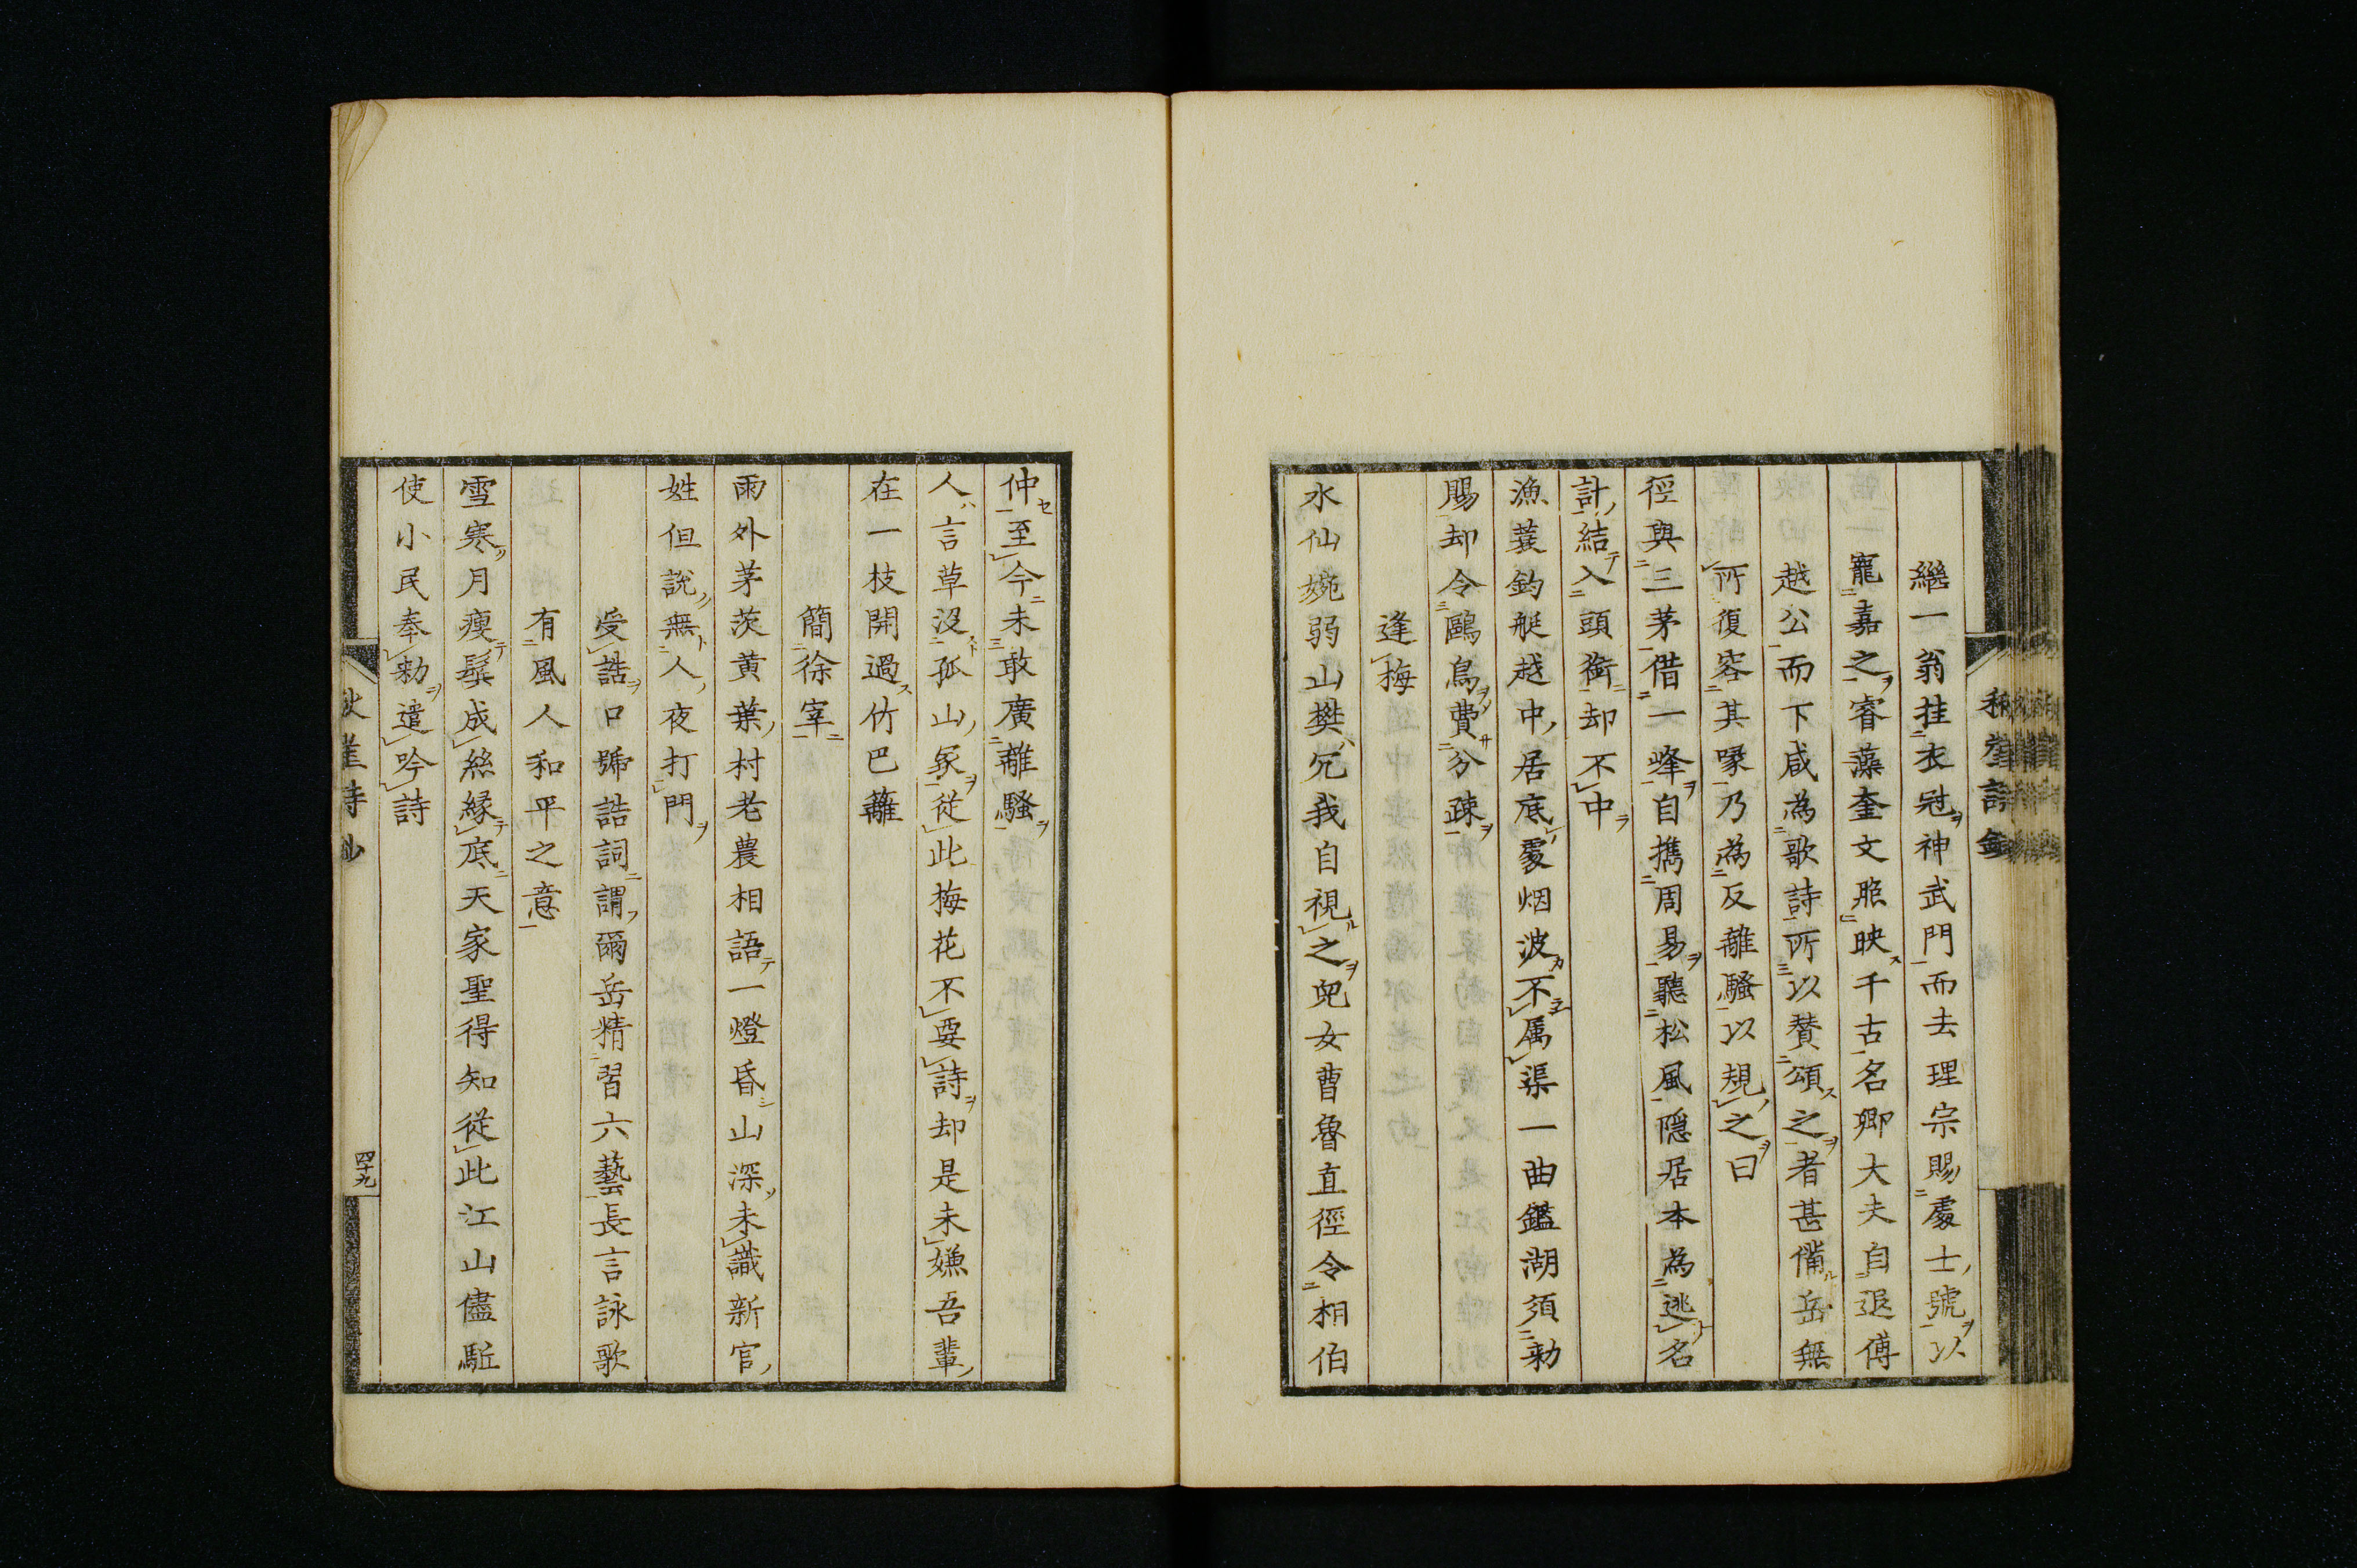 繼一翁挂衣冠神武門而去理宗賜處士號以
寵嘉之睿藻奎文照映千古名卿大夫自退傅
越公而下咸為歌詩所以賛頌之者甚備岳無
所復容其喙乃為反離騷以規之曰
徑與三茅借一峰自擕周易聽松風隠居本為逃名
計結入頭銜却不中
漁蓑釣艇越中居底處烟波不属渠一曲鑑湖須勅
賜却令鷗鳥費分疎
逢梅
水仙婉弱山樊兄我自視之兒女曹魯直徑令相伯
仲至今未敢廣離騷
人言草沒孤山冢從此梅花不要詩却是未嫌吾輩
在一枝開過竹巴籬
簡徐宰
雨外茅茨黄葉村老農相語一燈昏山深未識新官
姓但說無人夜打門
受誥口號誥詞謂爾岳精習六藝長言詠歌
有風人和平之意
雪寒月瘦鬂成絲緣底天家聖得知從此江山儘駈
使小民奉勅遣吟詩
秋崖詩鈔
四十九